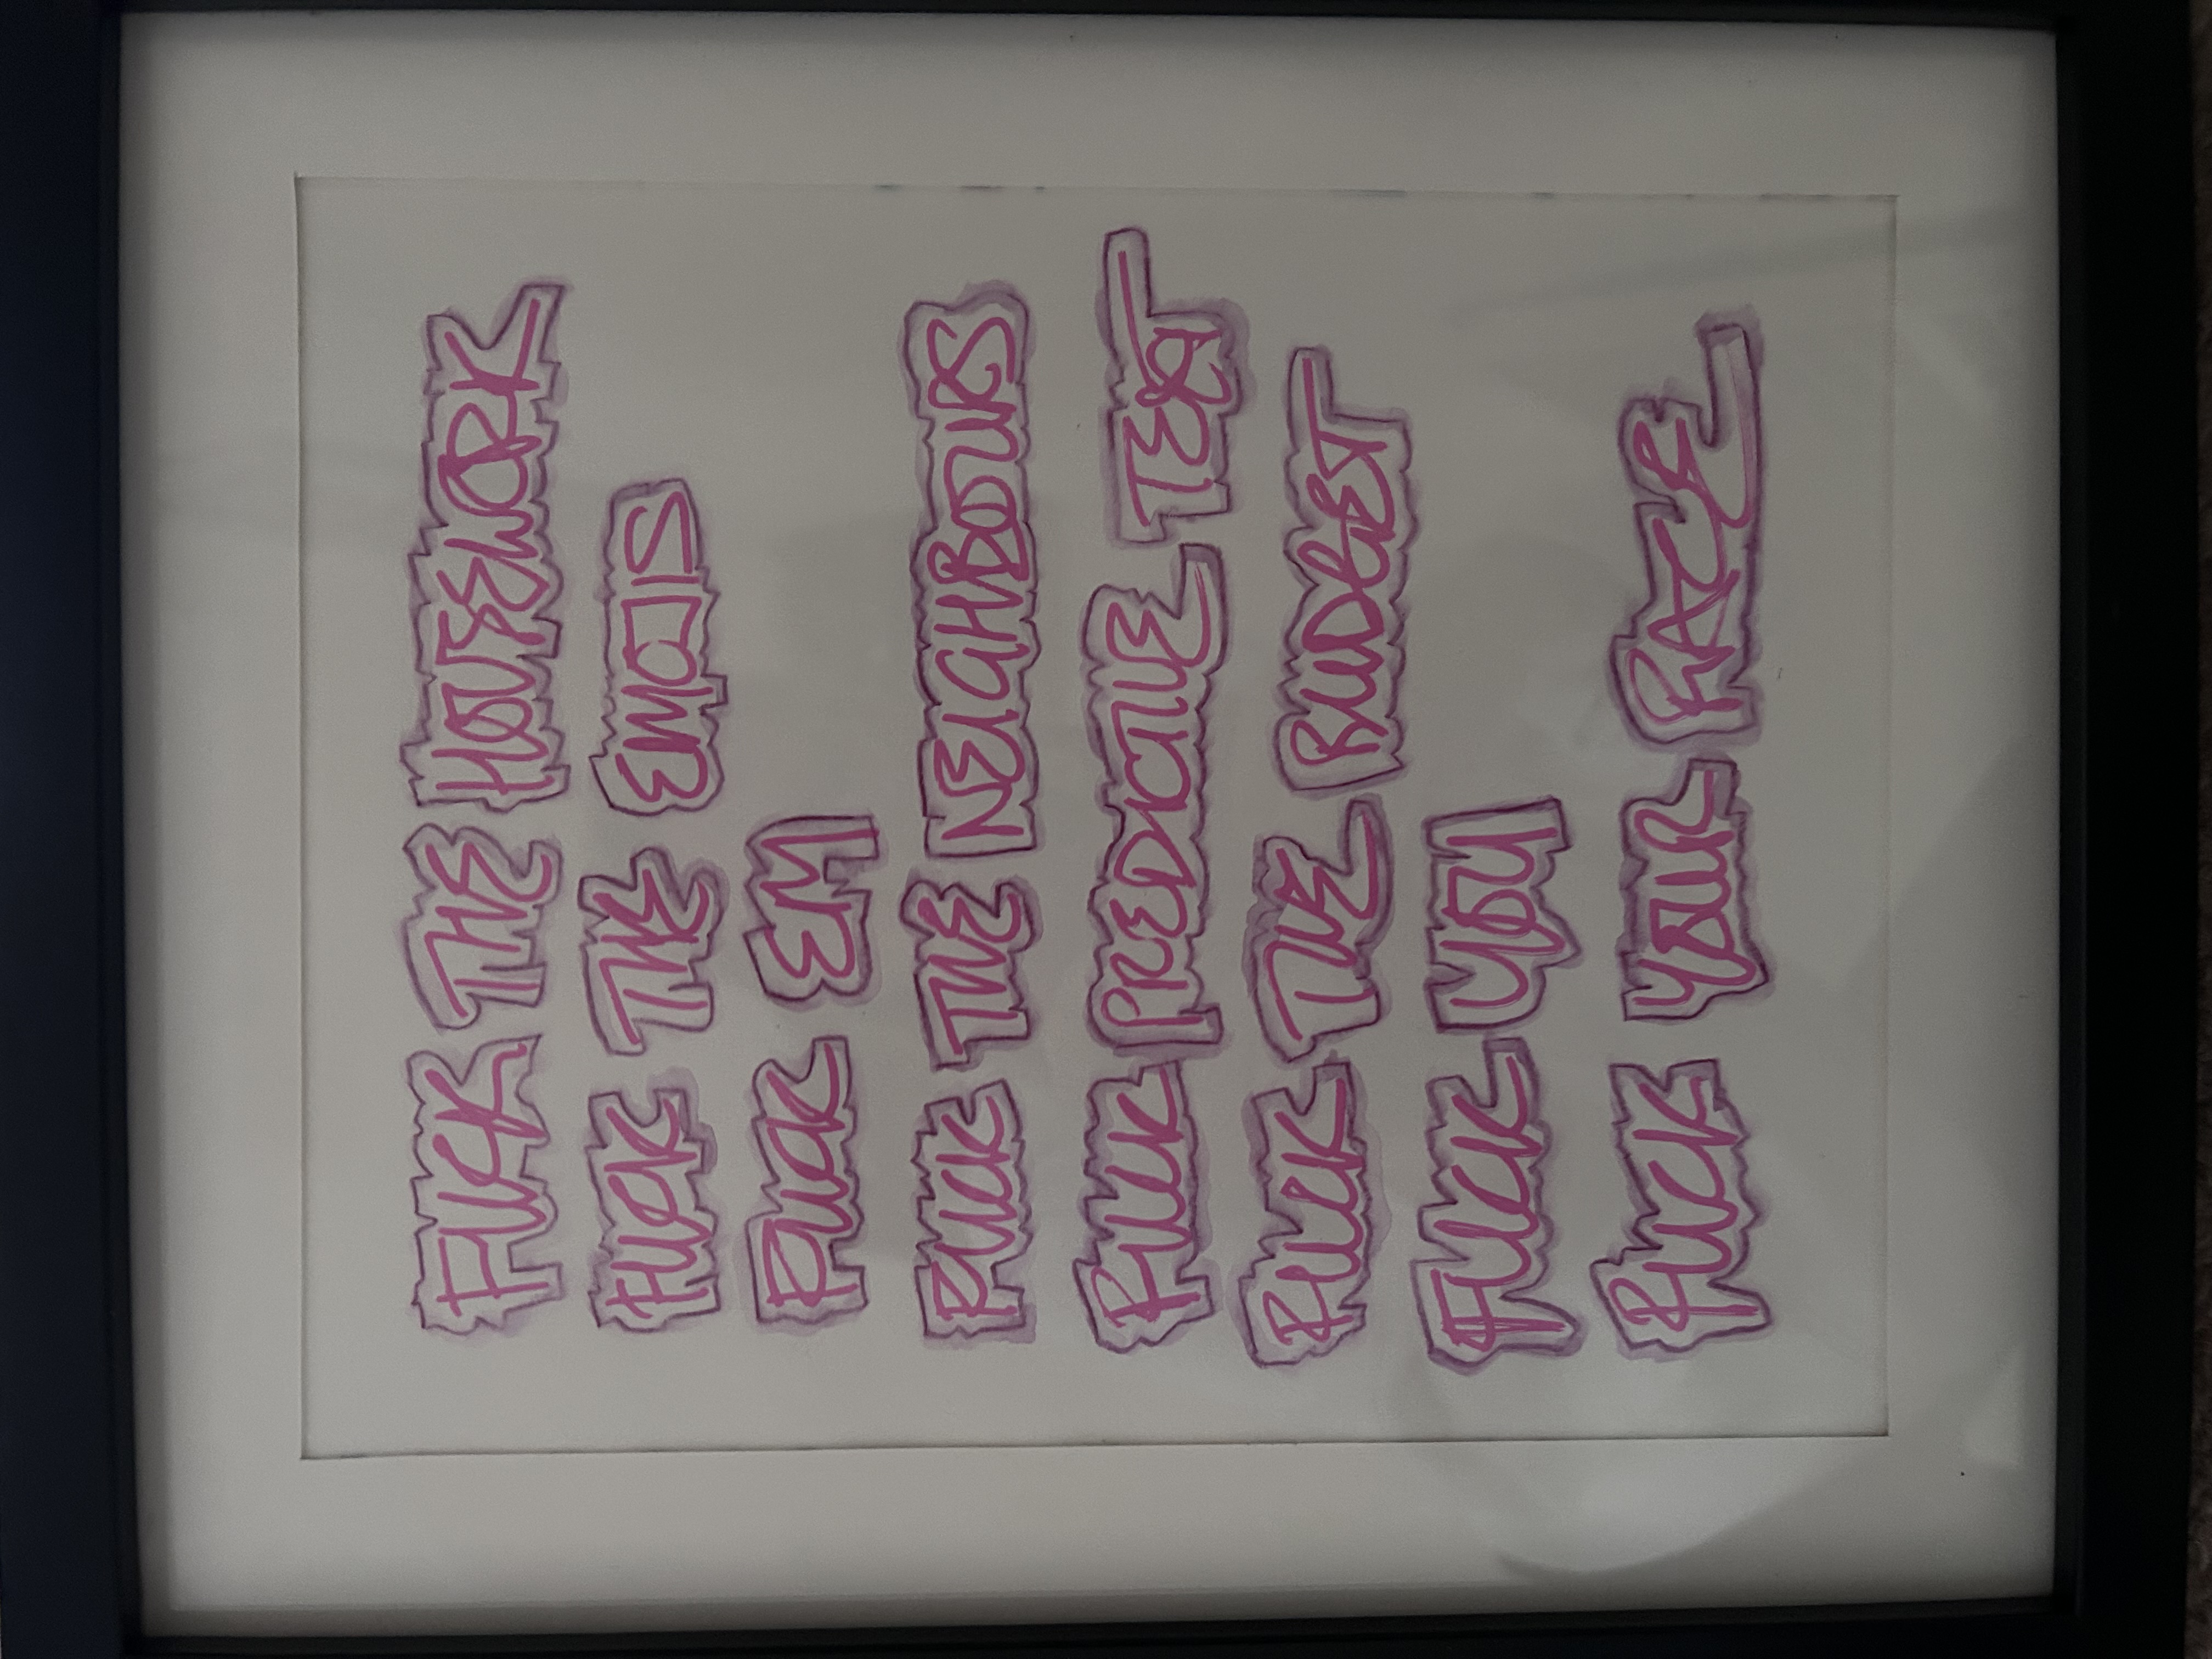 FUCK THE HOUSEWORK
FUCK THE EMAILS
FUCK EM
FUCK THE NEIGHBOURS
FUCK PREDICTIVE TEXT
FUCK THE BUDGET
FUCK YOU
FUCK YOUR FACE